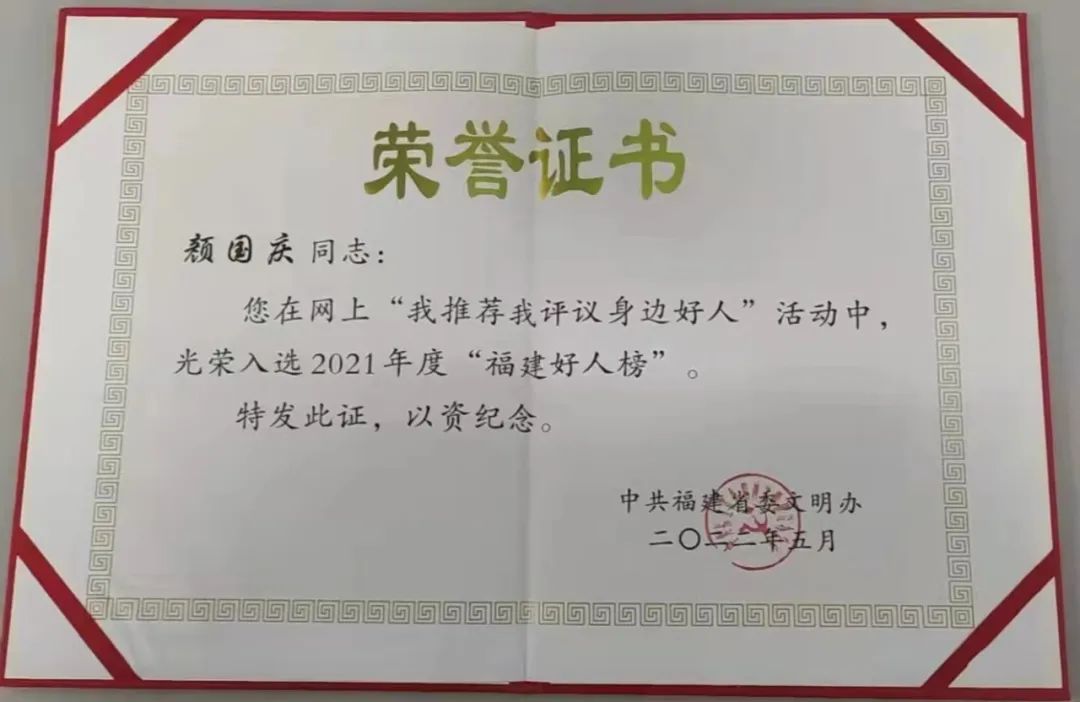 荣誉证书
颜国庆同志：
您在网上“我推荐我评议身边好人”活动中，
光荣入选2021年度“福建好人榜”。
特发此证，以资纪念。
中共福建省委文明办
二〇二二年五月